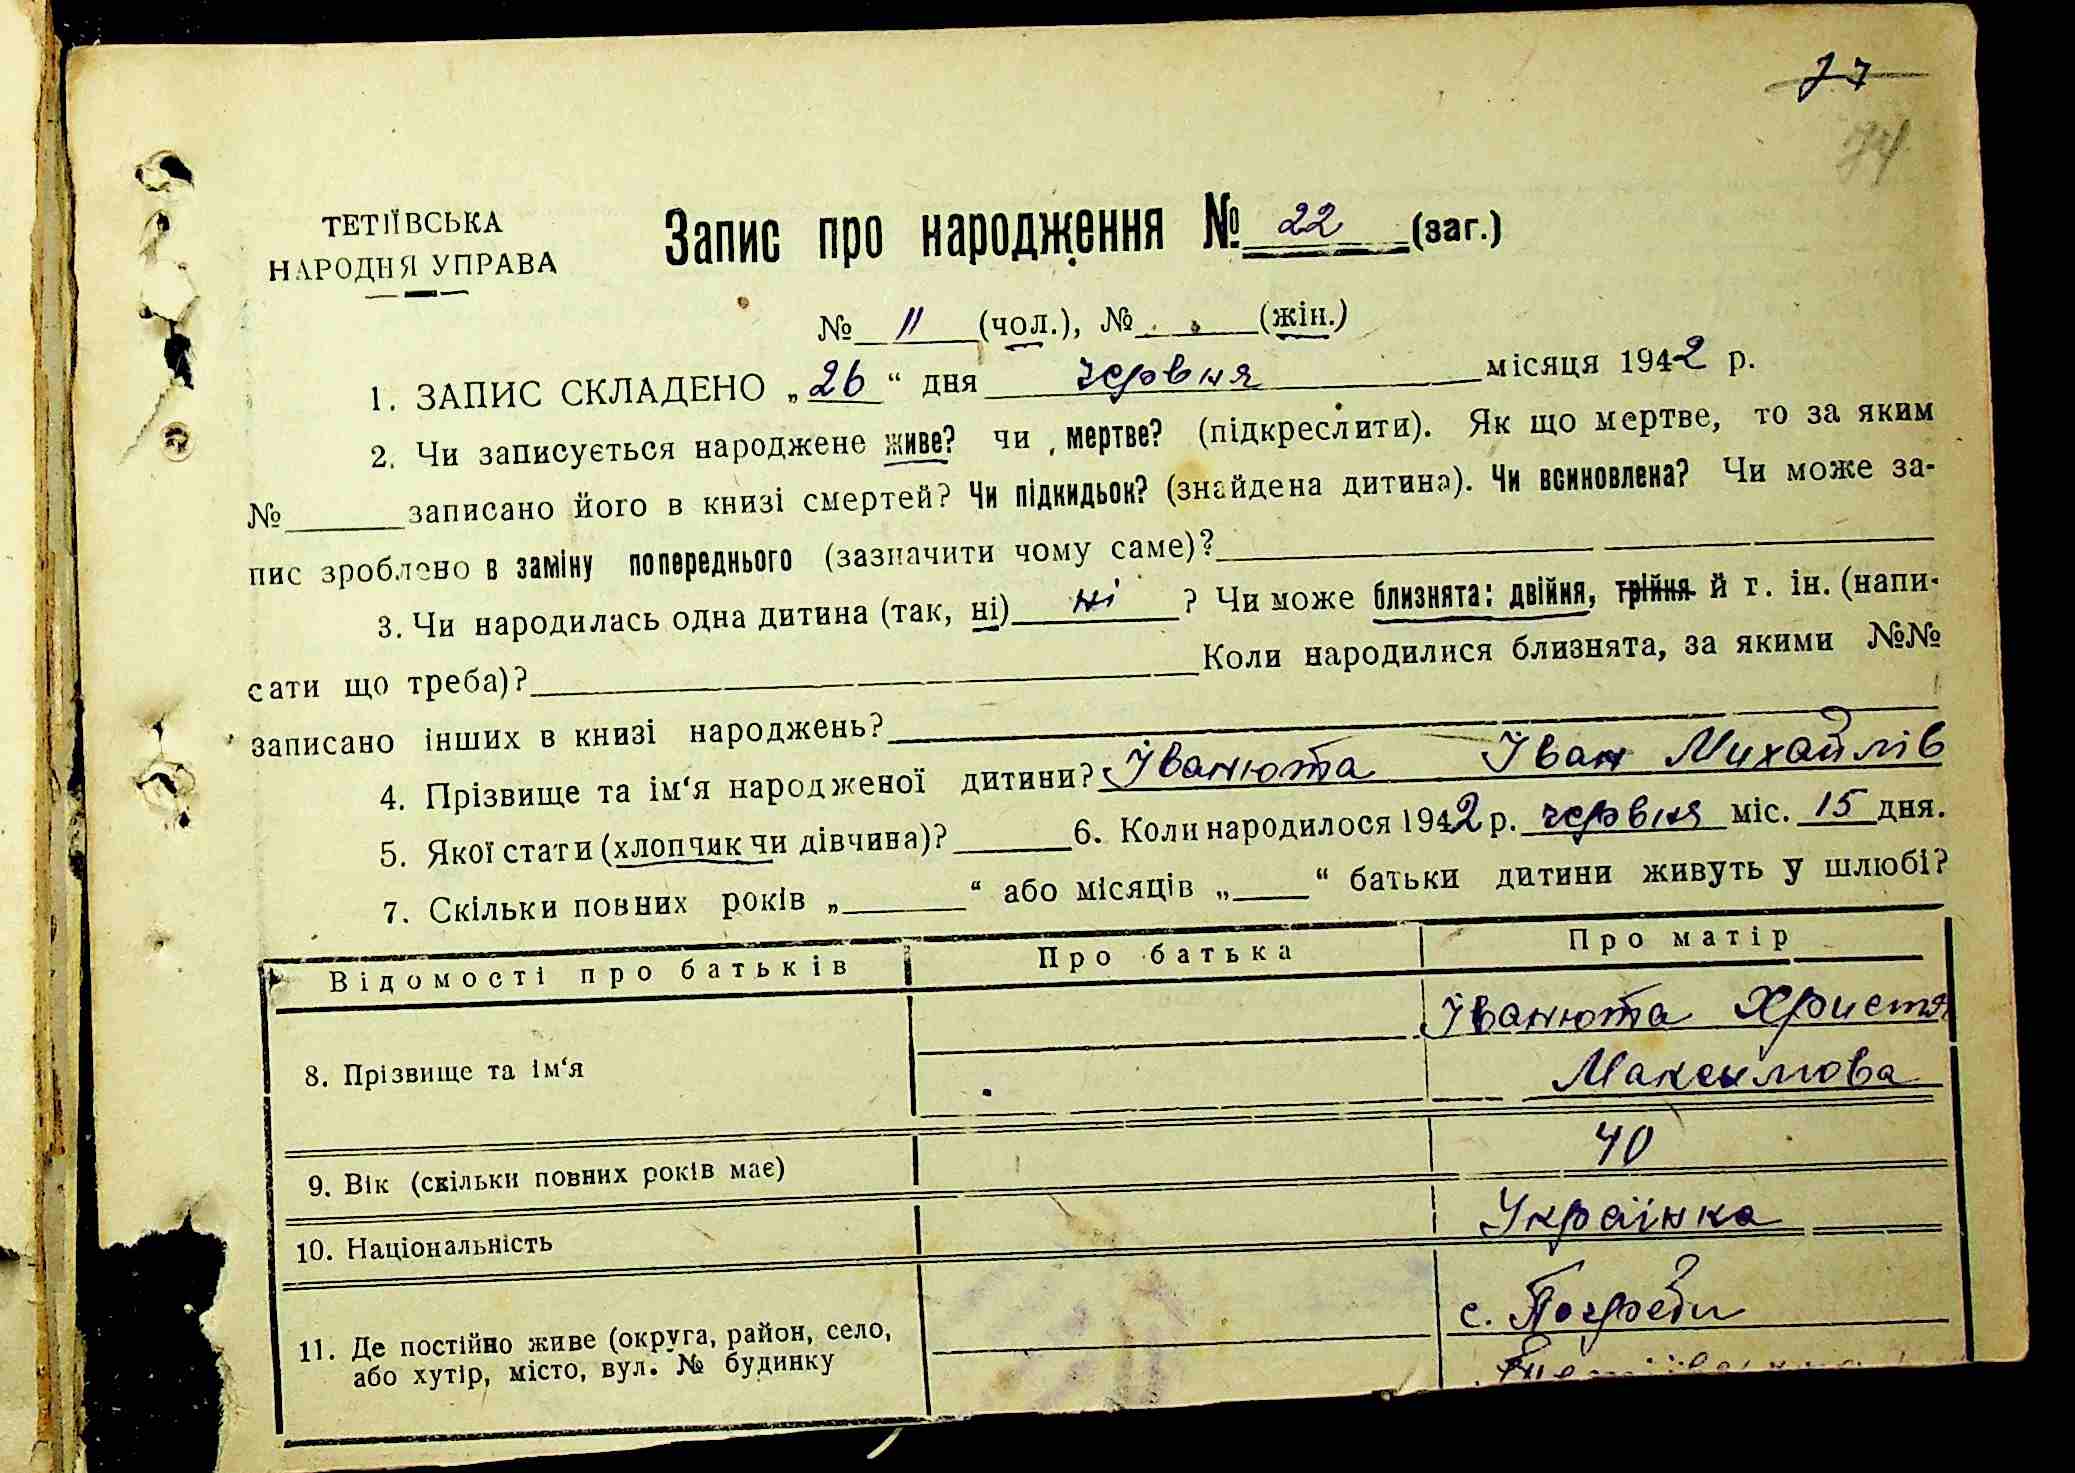 77
74
ТЕТІЇВСЬКА
НАРОДНЯ УПРАВА
Запис про народження № 22 (заг.)
№ 11 (чол.), № (жін.)
1. ЗАПИС СКЛАДЕНО „26“ дня червня місяця 1942 р.
2. Чи записується народжене живе? чи мертве? (підкреслити). Як що мертве, то за яким
№ записано його в книзі смертей? Чи підкидьок? (знайдена дитина). Чи всиновлена? Чи може за-
пис зроблено в заміну попереднього (зазначити чому саме)?
3. Чи народилась одна дитина (так, ні) ні ? Чи може близнята: двійня, трійня й т. ін. (напи-
сати що треба)? Коли народилися близнята, за якими №№
записано інших в книзі народжень?
4. Прізвище та ім‘я народженої дитини? Іванюта Іван Михайлів
5. Якої стати (хлопчик чи дівчина)? 6. Коли народилося 1942 р. червня міс. 15 дня.
7. Скільки повних років „ “ або місяців „ “ батьки дитини живуть у шлюбі?
Відомості про батьків Про батька Про матір
8. Прізвище та ім‘я Іванюта Христя
Максимова
9. Вік (скільки повних років має) 40
10. Національність Українка
11. Де постійно живе (округа, район, село, с. Погреби
або хутір, місто, вул. № будинку